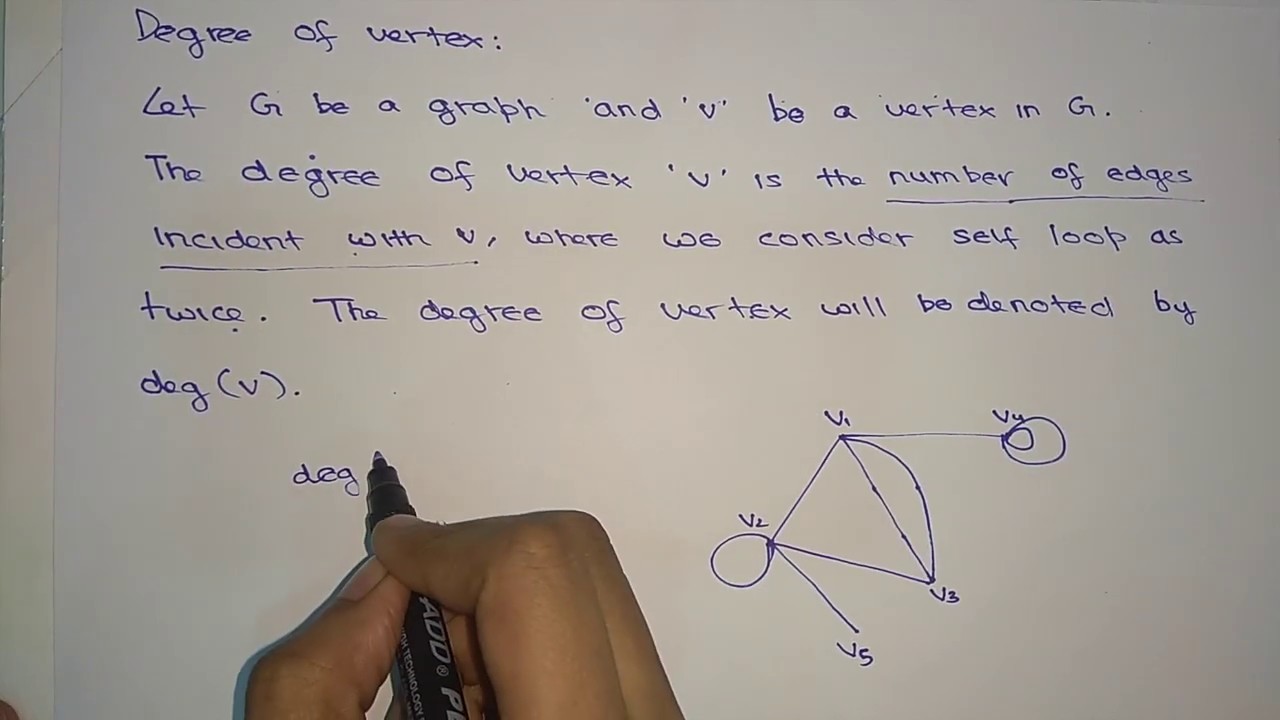 Degree of vertex:
Let G be a graph and 'v' be a vertex in G.
The degree of vertex 'v' is the number of edges
incident with v, where we consider self loop as
twice. The degree of vertex will be denoted by
deg(v).
V1
V4
deg
V2
V3
V5
ADD